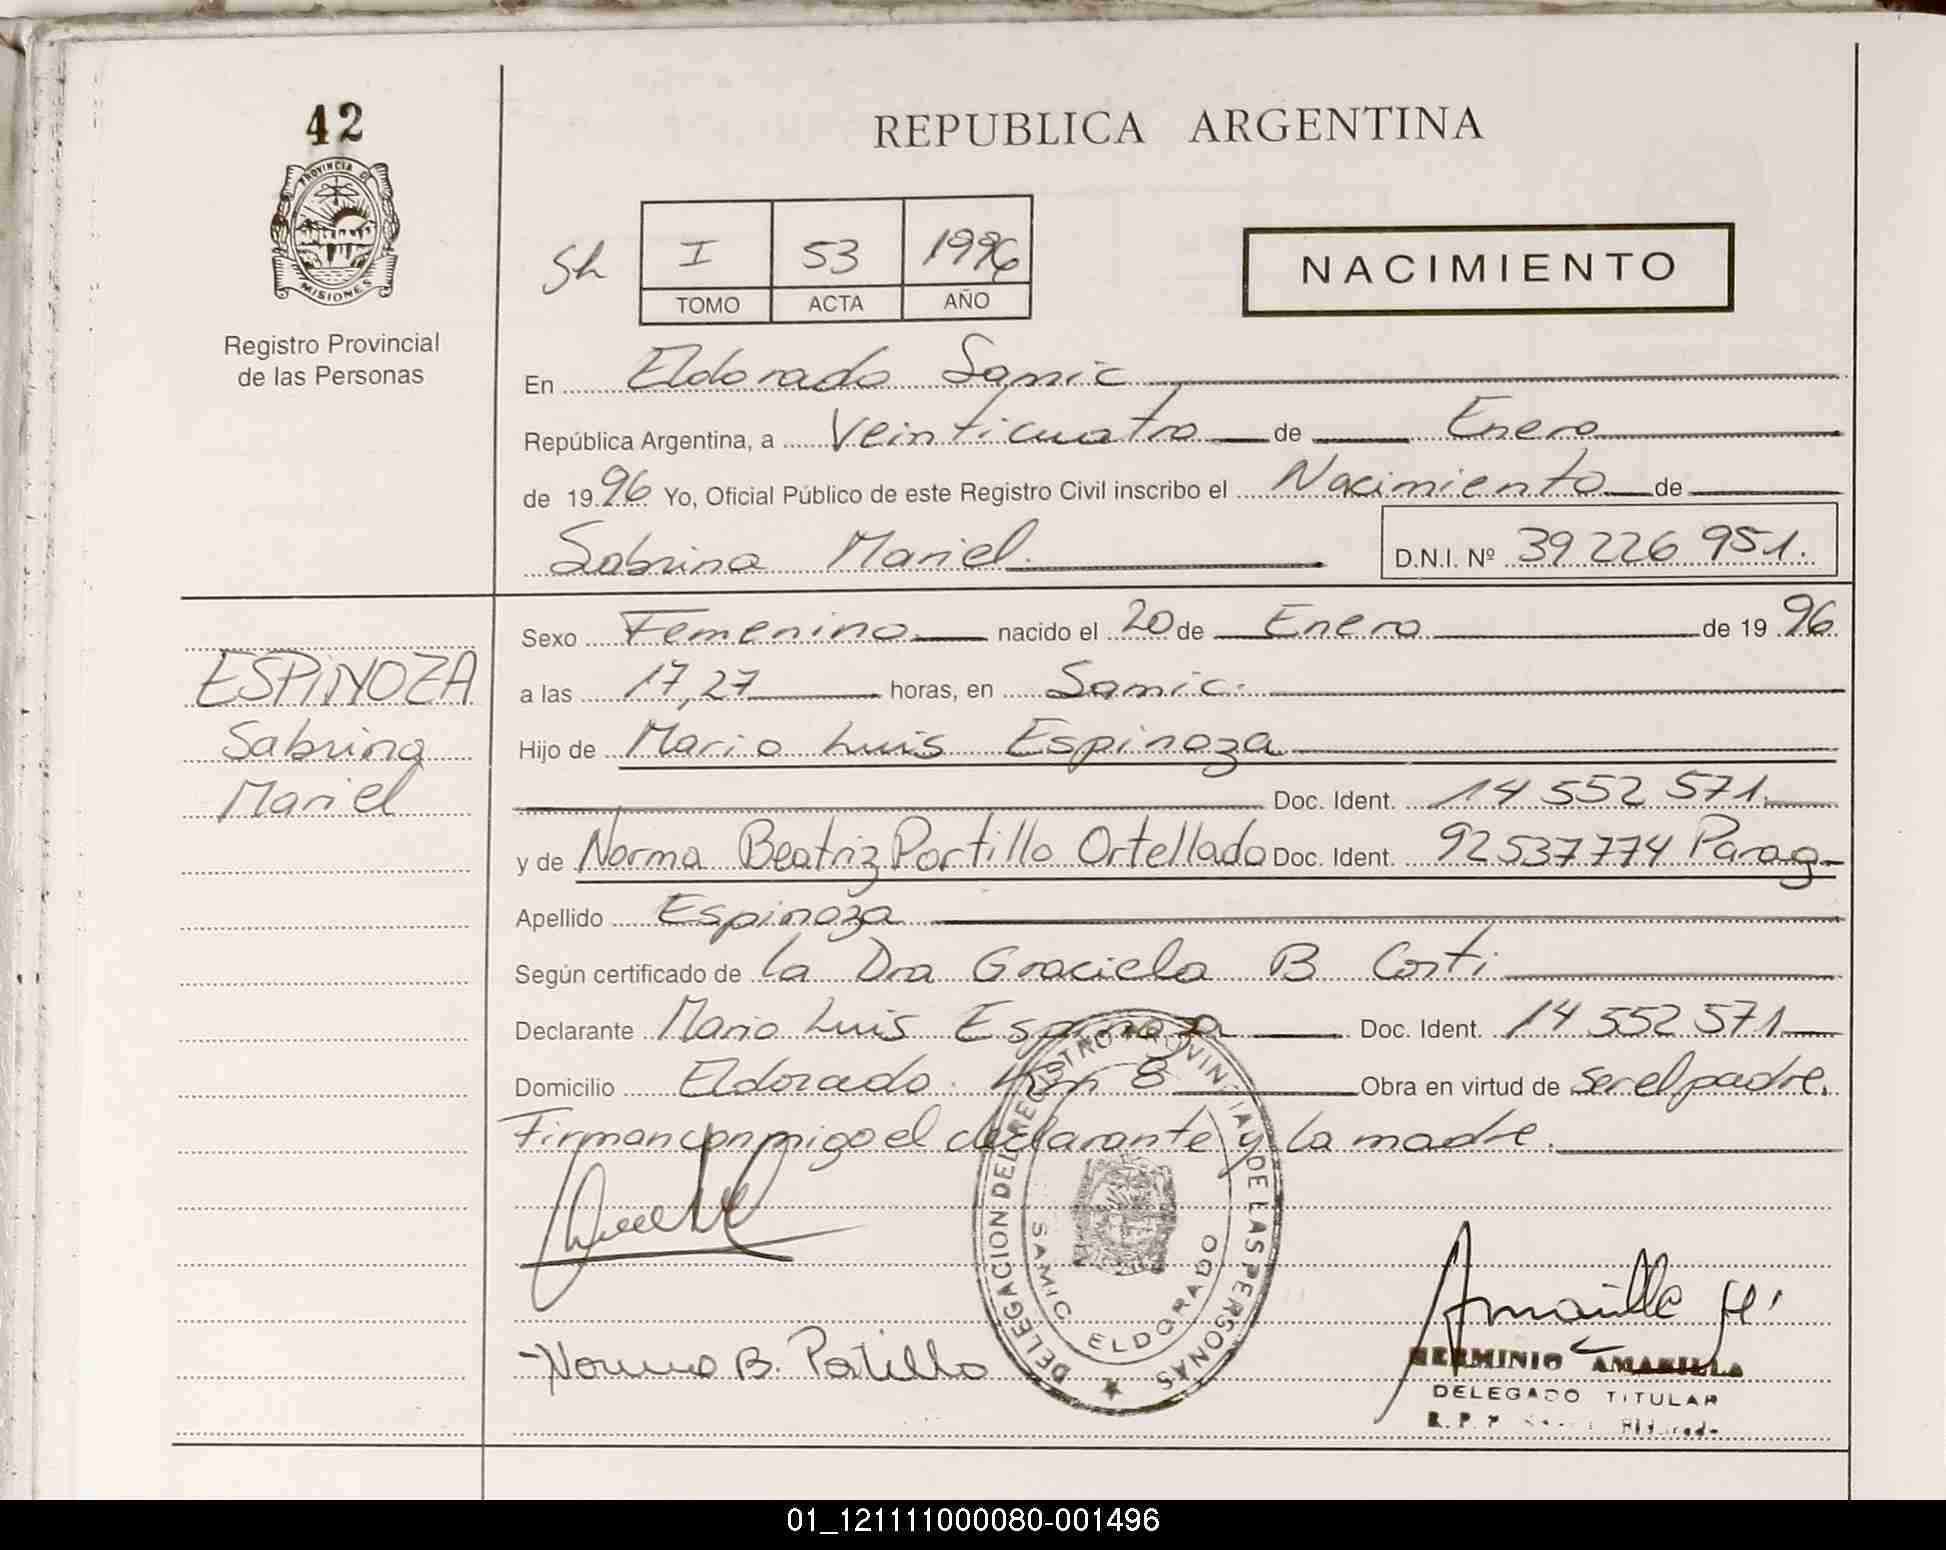 42
PROVINCIA DE
MISIONES
Registro Provincial
de las Personas
REPUBLICA ARGENTINA
Sh I 53 1996
TOMO ACTA AÑO
NACIMIENTO
En Eldorado Samic
República Argentina, a Veinticuatro de Enero
de 1996 Yo, Oficial Público de este Registro Civil inscribo el Nacimiento de
Sabrina Mariel. D.N.I. Nº 39 226 951.
ESPINOZA
Sabrina
Mariel
Sexo Femenino nacido el 20 de Enero de 1996
a las 17,27 horas, en Samic.
Hijo de Mario Luis Espinoza
Doc. Ident. 14 552 571
y de Norma Beatriz Portillo Ortellado Doc. Ident. 92 537 774 Parag
Apellido Espinoza
Según certificado de la Dra Graciela B Corti
Declarante Mario Luis Espinoza Doc. Ident. 14 552 571
Domicilio Eldorado. Km 8 Obra en virtud de ser el padre.
Firman conmigo el declarante y la madre.
DELEGACION DEL REGISTRO PROVINCIAL DE LAS PERSONAS
SAMIC ELDORADO
Norma B. Portillo
Amarilla H.
HERMINIO AMARILLA
DELEGADO TITULAR
R. P. P. Eldorado
01_121111000080-001496